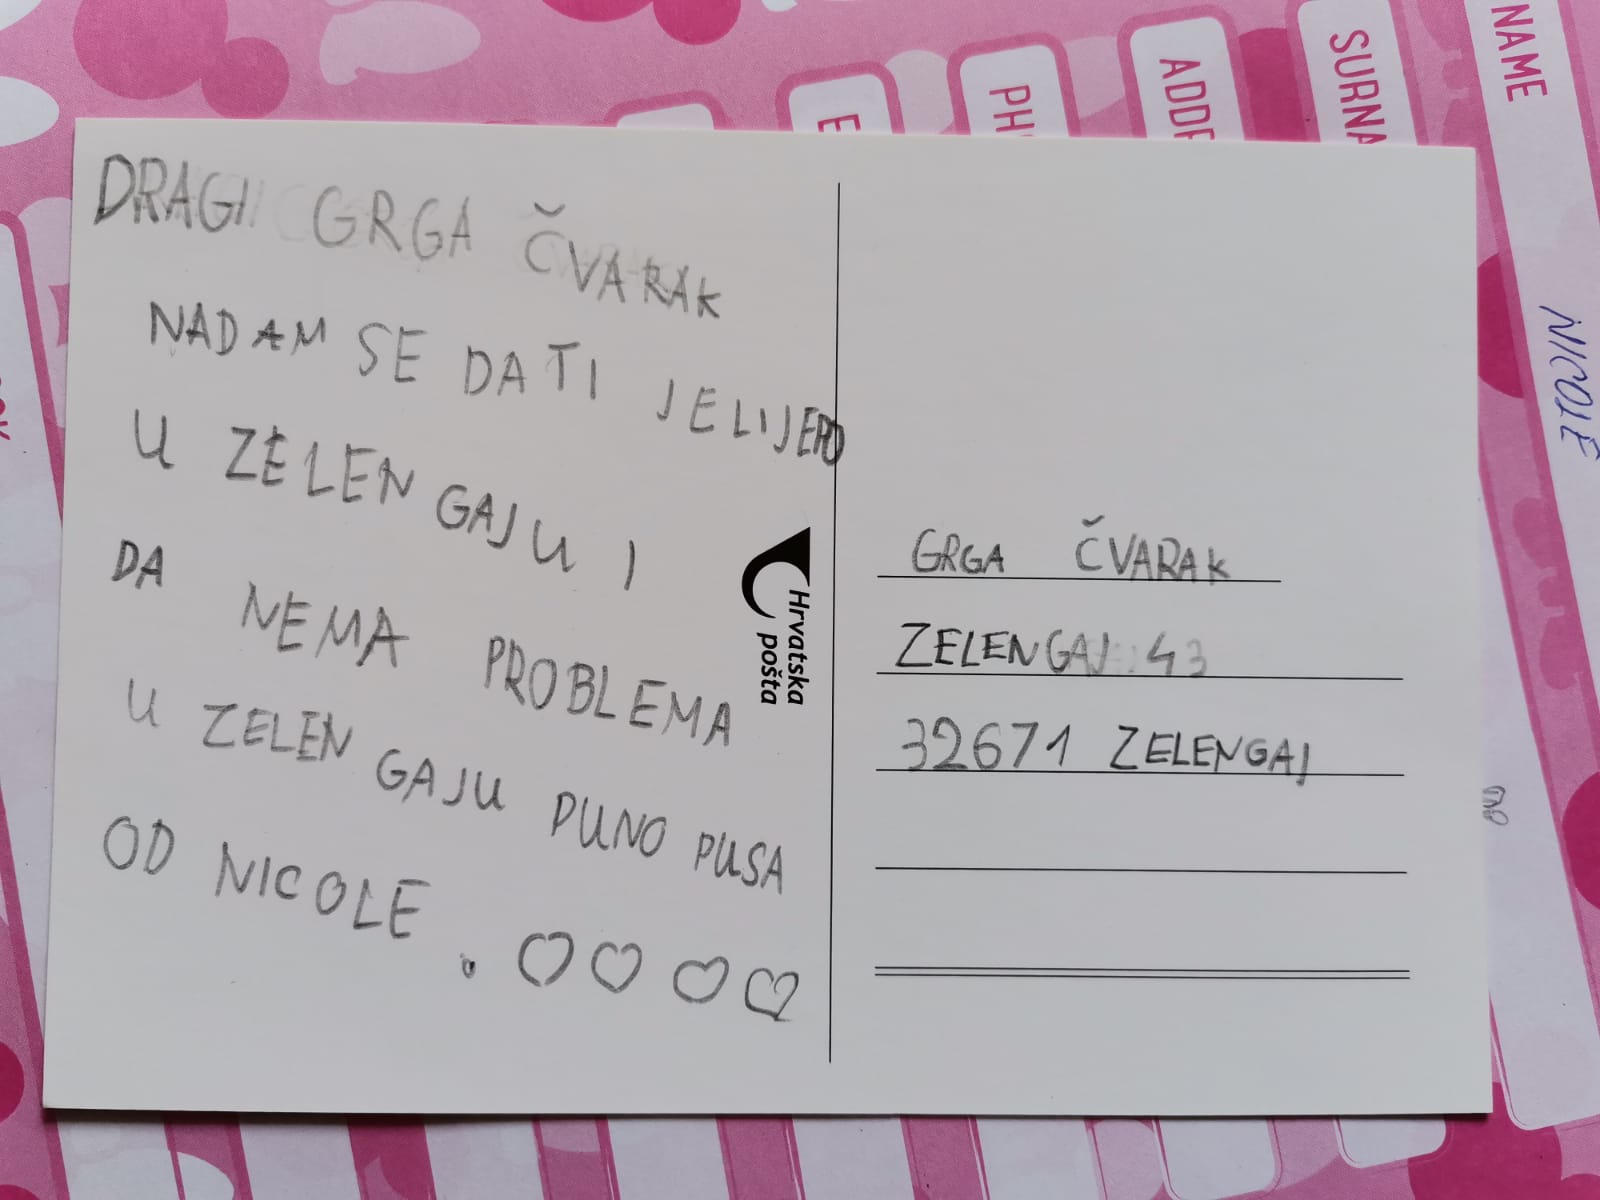 DRAGI GRGA ČVARAK
NADAM SE DA TI JE LIJEPO
U ZELEN GAJU I
DA NEMA PROBLEMA
U ZELEN GAJU PUNO PUSA
OD NICOLE.
Hrvatska
pošta
GRGA ČVARAK
ZELENGAJ 43
32671 ZELENGAJ
NAME
SURNA
ADDR
PH
E
NICOLE